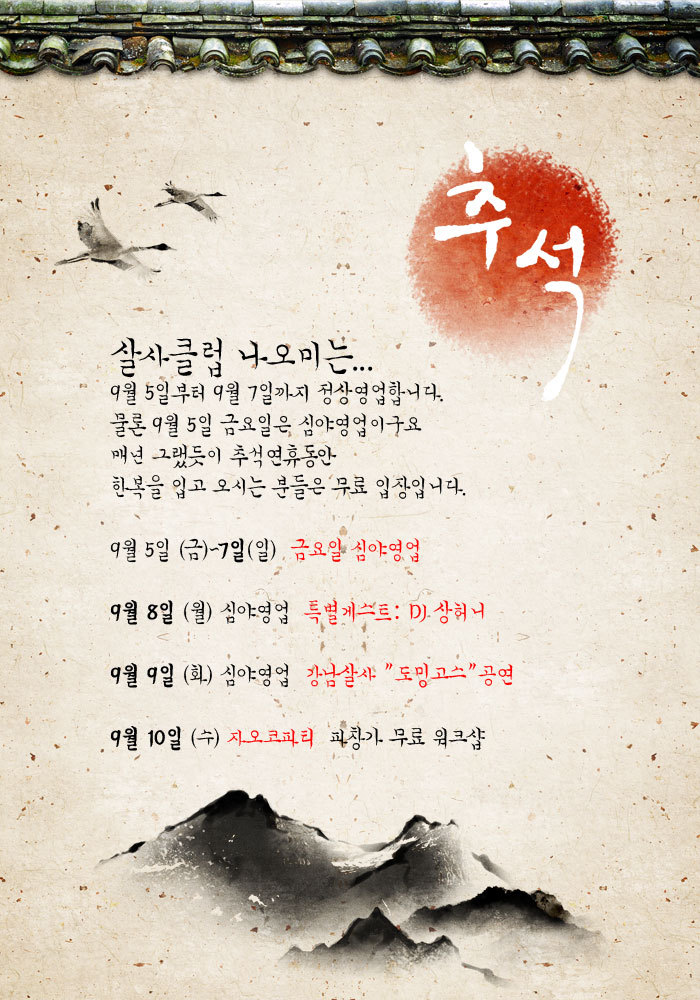 추석
살사클럽 나오미는...
9월 5일부터 9월 7일까지 정상영업합니다.
물론 9월 5일 금요일은 심야영업이구요
매년 그랬듯이 추석연휴동안
한복을 입고 오시는 분들은 무료 입장입니다.
9월 5일 (금)-7일(일) 금요일 심야영업
9월 8일 (월) 심야영업 특별게스트: DJ 상허니
9월 9일 (화) 심야영업 강남살사 "도밍고스"공연
9월 10일 (수) 자오코파티 파창가 무료 워크샵